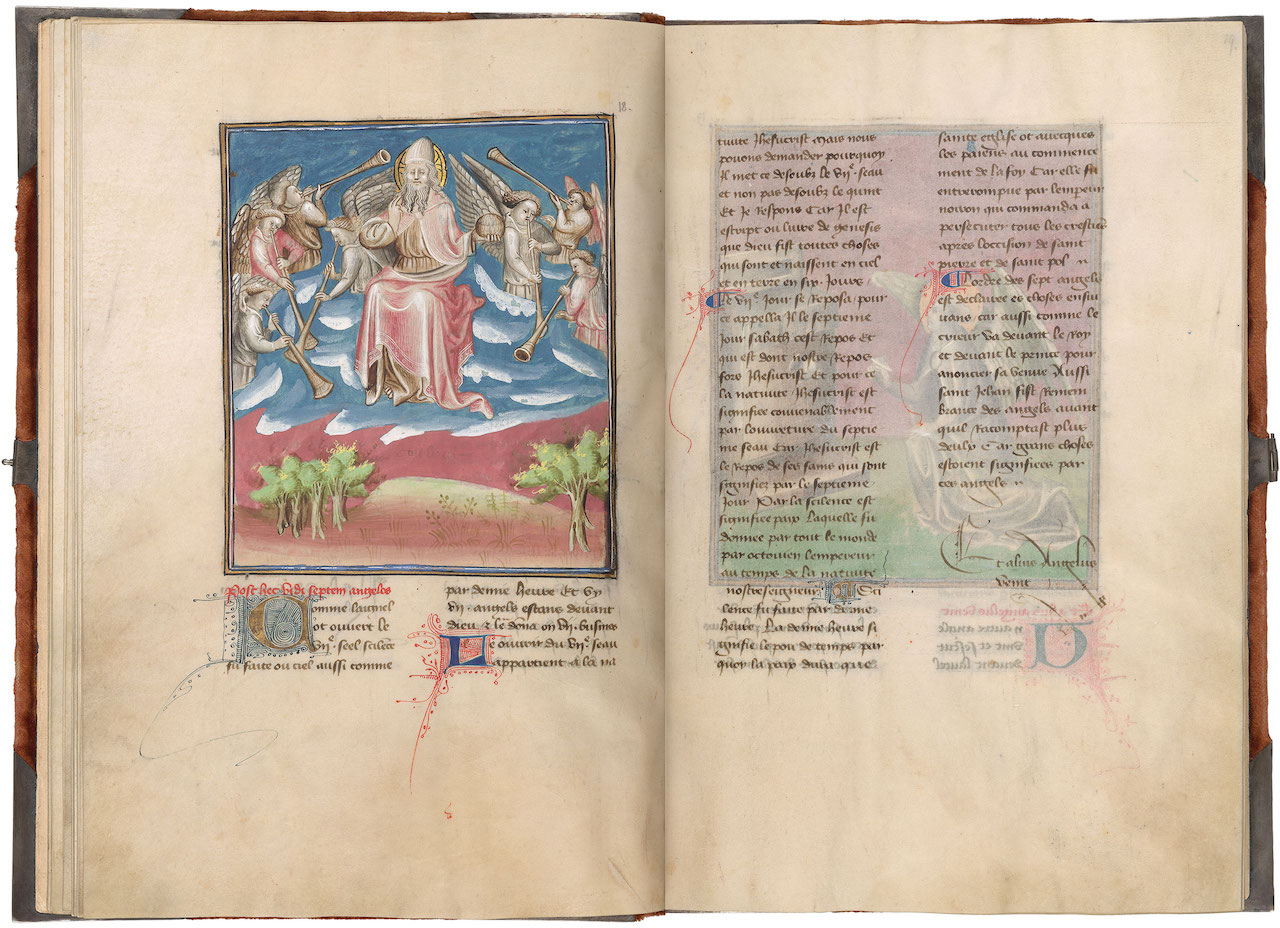 18.
Post hec vidi septem angelos
Comme laignel
ot ouvert le
vijͤ. seel scilece
fu faite ou ciel aussi comme
par demie heure Et vy
vij. angels estans devant
dieu z le dona on vij. busines
Le ouvrir du vijͤ. seau
appartient a la na
tivite Jhesucrist Mais nous
povons demander pourquoy
Il met ce desoubz le vijͤ. seau
et non pas desoubz le quint
Et Je Respons Car Il est
escript ou livre de genesis
que dieu fist toutes choses
qui sont et naissent en ciel
et en terre en six. Jours
Le vijͤ Jour se Reposa pour
ce appella Il le septieme
Jour sabath cest Repos Et
qui est dont nostre Repos
fors Jhesucrist Et pour ce
la nativite Jhesucrist est
signifiee couvenablement
par louverture du septie
me seau Car Jhesucrist est
le Repos de ses sains qui sont
signifiez par le septieme
Jour Par la scilence est
signifiee paix Laquelle fu
donnee par tout le monde
par octovien lempereur
au temps de la nativite
nostre seigneur La Sci
lence fu faite par demie
heure. La demie heure si
gnifie le pou de temps par
quoy la paix dura que le
sainte eglise ot avecques
les paiens au commence
ment de la foy Car elle fu
entrerompue par lempeur
noiron qui commanda a
persecuter tous les crestiens
apres loccision de saint
pierre et de saint pol
Lordre des sept angels
est declairee es choses ensui
vans car aussi comme le
crieur va devant le Roy
et devant le prince pour
anoncier sa venue Aussi
saint Jehan fist Remem
brance des angels avant
quil Racomptast plus
deulx Car grans choses
estoient signifiees par
ces angels
Et alius Angelus
venit